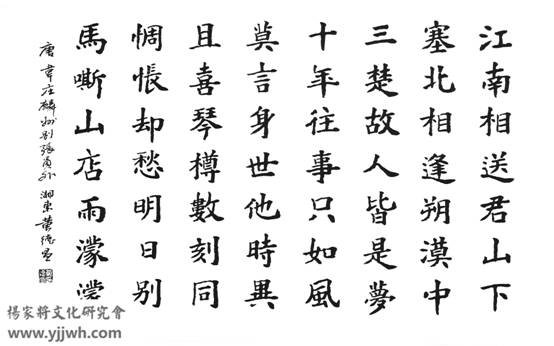 江南相送君山下
塞北相逢朔漠中
三楚故人皆是夢
十年往事只如風
莫言身世他時異
且喜琴樽數刻同
惆悵却愁明日别
馬嘶山店雨濛濛
唐韋庄麟州别張員外 湘東
楊家將文化研究會
www.yjjwh.com